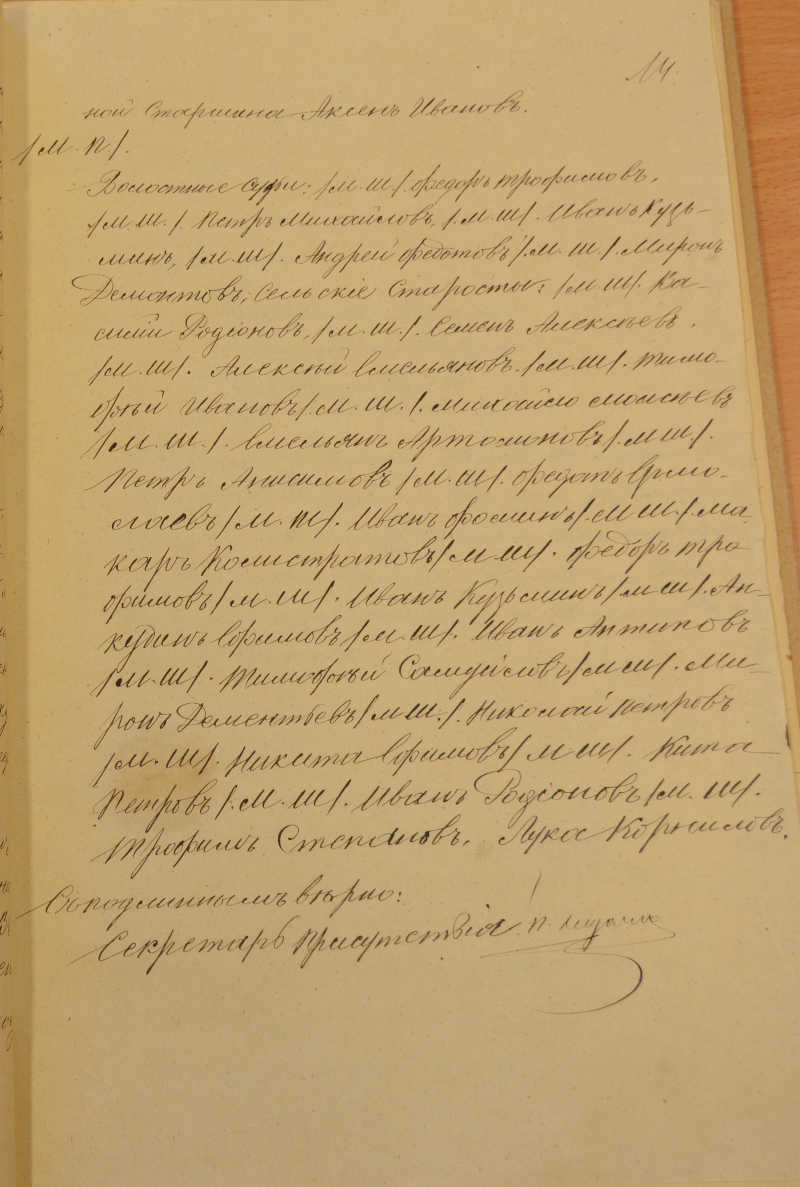 14.
ной Старшина Аксенъ Ивановъ.
/М. П/.
Волостные Судьи: /М. Ш/. Федоръ Трофимовъ,
/М. Ш./ Петръ Михайловъ, /М. Ш/. Иванъ Кузь-
минъ, /М. Ш/. Андрей Федотовъ /М. Ш./ Миронъ
Демонтовъ, Сельскіе Старосты: /М. Ш/. Ка-
сьян Родіоновъ, /М. Ш./. Семенъ Алексѣевъ.
/М. Ш/. Алексѣй Емельяновъ. /М. Ш/. Тимо-
фѣй Ивановъ /. М. Ш./. Михайло Моисѣевъ
/М. Ш./. Емельянъ Артамоновъ /. М Ш/.
Петръ Анисимовъ /М. Ш/. Федотъ Ермо-
лаевъ /М. Ш/. Иванъ Фоминъ /. М Ш./ Ма-
каръ Калистратовъ /М. Ш/. Федоръ Тро-
фимовъ /М. Ш/. Иванъ Кузьминъ /М Ш/. Ан-
кудинъ Ефимовъ /М. Ш/. Иванъ Антиповъ
/М. Ш/. Тимофѣй Самуйловъ /М Ш/. Ми-
ронъ Дементьевъ /М Ш./. Николай Петровъ
/М. Ш/. Никита Ефимовъ /М Ш/. Кита
Петровъ /. М. Ш/. Иванъ Родіоновъ /М. Ш/.
Трофимъ Степановъ. Лука Корниловъ.
Съ подлиннымъ вѣрно:
Секретарь Присутствія П.